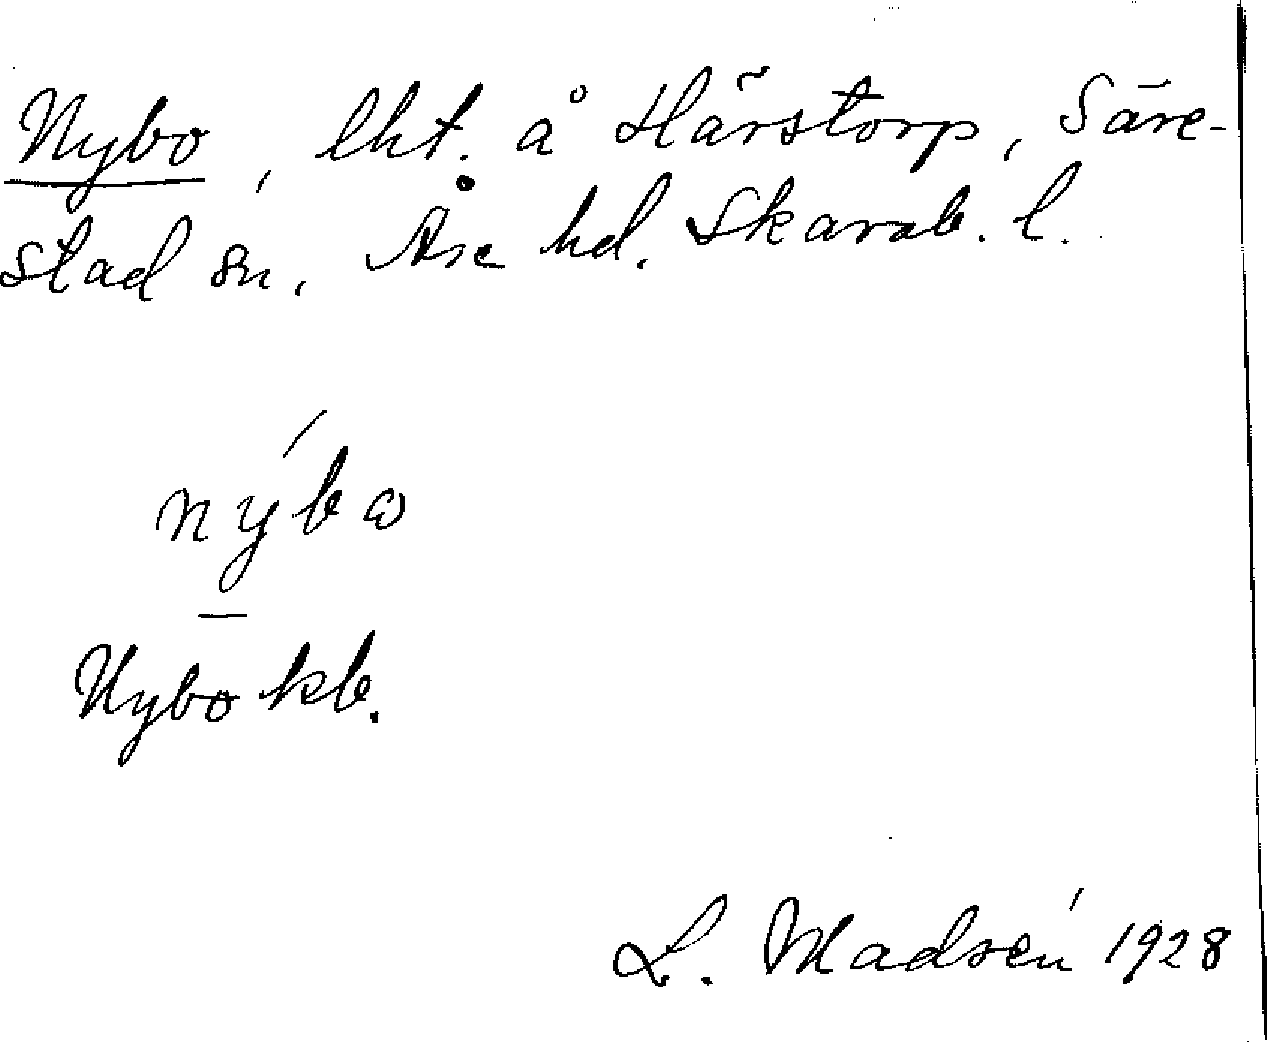 Nybo, lht. å Härstorp, Säre-
stad sn, Åse hd. Skarab. l.
nýbω
Nybo kb.
L. Madsén 1928